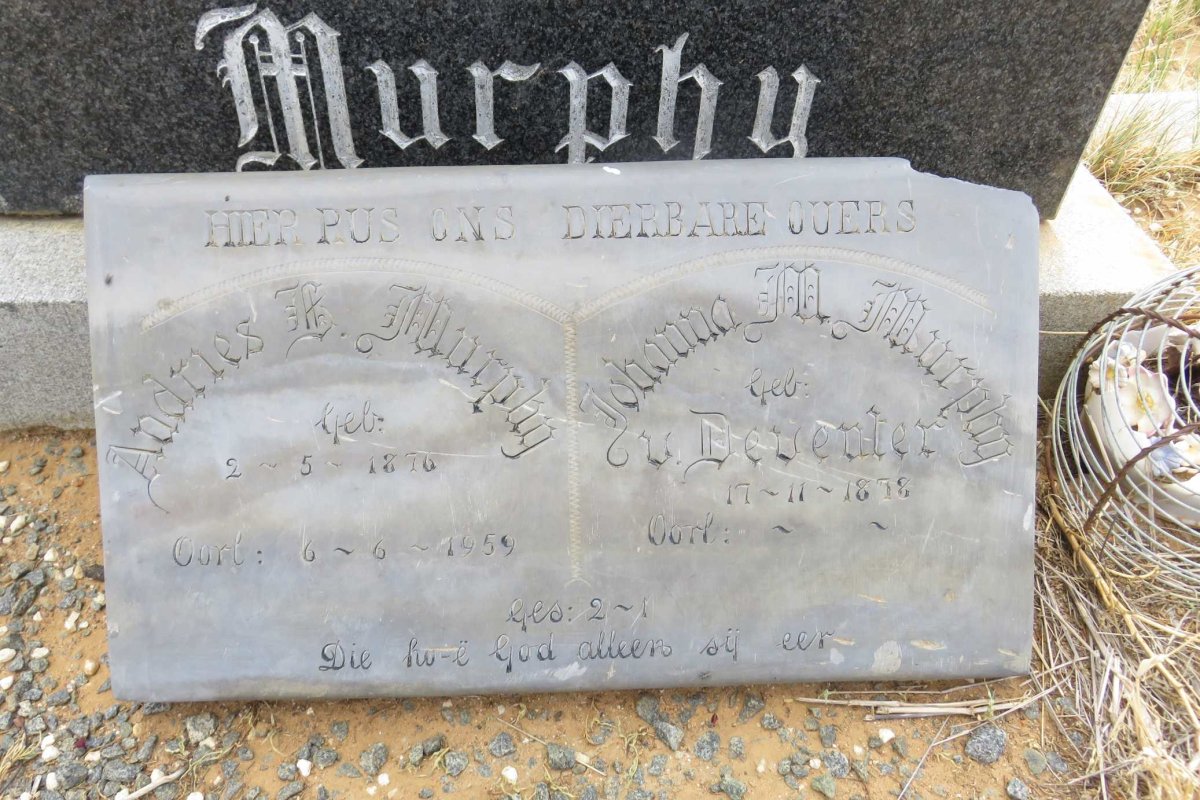 Murphy
HIER RUS ONS DIERBARE OUERS
Andries L. Murphy
Geb:
2 ~ 5 ~ 1876
Oorl: 6 ~ 6 ~ 1959
Johanna M. Murphy
Geb:
v. Deventer
17 ~ 11 ~ 1878
Oorl: ~ ~
Ges: 2 ~ 1
Die ho-ë God alleen sij eer